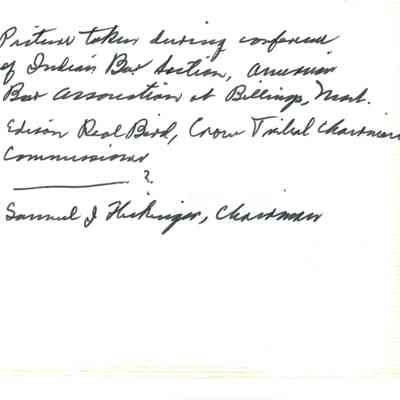 Picture taken during conference
of Indian Bar Section, American
Bar Association at Billings, Mont.
Edison Real Bird, Crow Tribal Chairman
Commissioner
________ ?
Samuel J Flickinger, Chairman